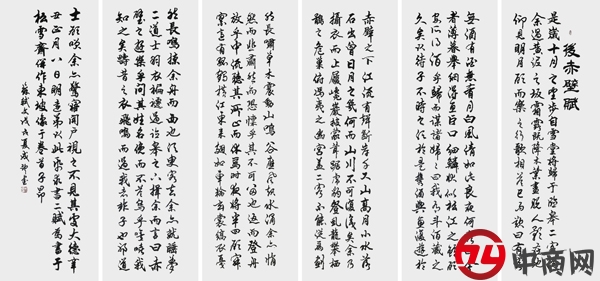 後赤壁賦
是歲十月之望步自雪堂將歸于臨皋二客從
余過黃泥之坂霜露既降木葉盡脫人影在地
仰見明月顧而樂之行歌相答已而歎曰有客
無酒有酒無肴月白風清如此良夜何客曰今
者薄暮舉網得魚巨口細鱗狀似松江之鱸顧
安所得酒乎歸而謀諸婦婦曰我有斗酒藏之
久矣以待子不時之須於是攜酒與魚復遊於
赤壁之下江流有聲斷岸千尺山高月小水落
石出曾日月之幾何而江山不可復識矣余乃
攝衣而上履巉巖披蒙茸踞虎豹登虬龍攀栖
鶻之危巢俯馮夷之幽宮蓋二客不能從焉劃
然長嘯草木震動山鳴谷應風起水涌余亦悄
然而悲肅然而恐凜乎其不可留也返而登舟
放乎中流聽其所止而休焉時夜將半四顧寂
寥適有孤鶴橫江東來翅如車輪玄裳縞衣戛
然長鳴掠余舟而西也須臾客去余亦就睡夢
二道士羽衣蹁躚過臨皋之下揖余而言曰赤
壁之遊樂乎問其姓名俛而不答嗚呼噫嘻我
知之矣疇昔之夜飛鳴而過我者非子也耶道
士顧笑余亦驚寤開戶視之不見其處大德辛
丑正月八日明遠弟以此紙求書二賦為書于
松雪齋併作東坡像于卷首子昂
蘇軾文戊戌夏成書
中商网